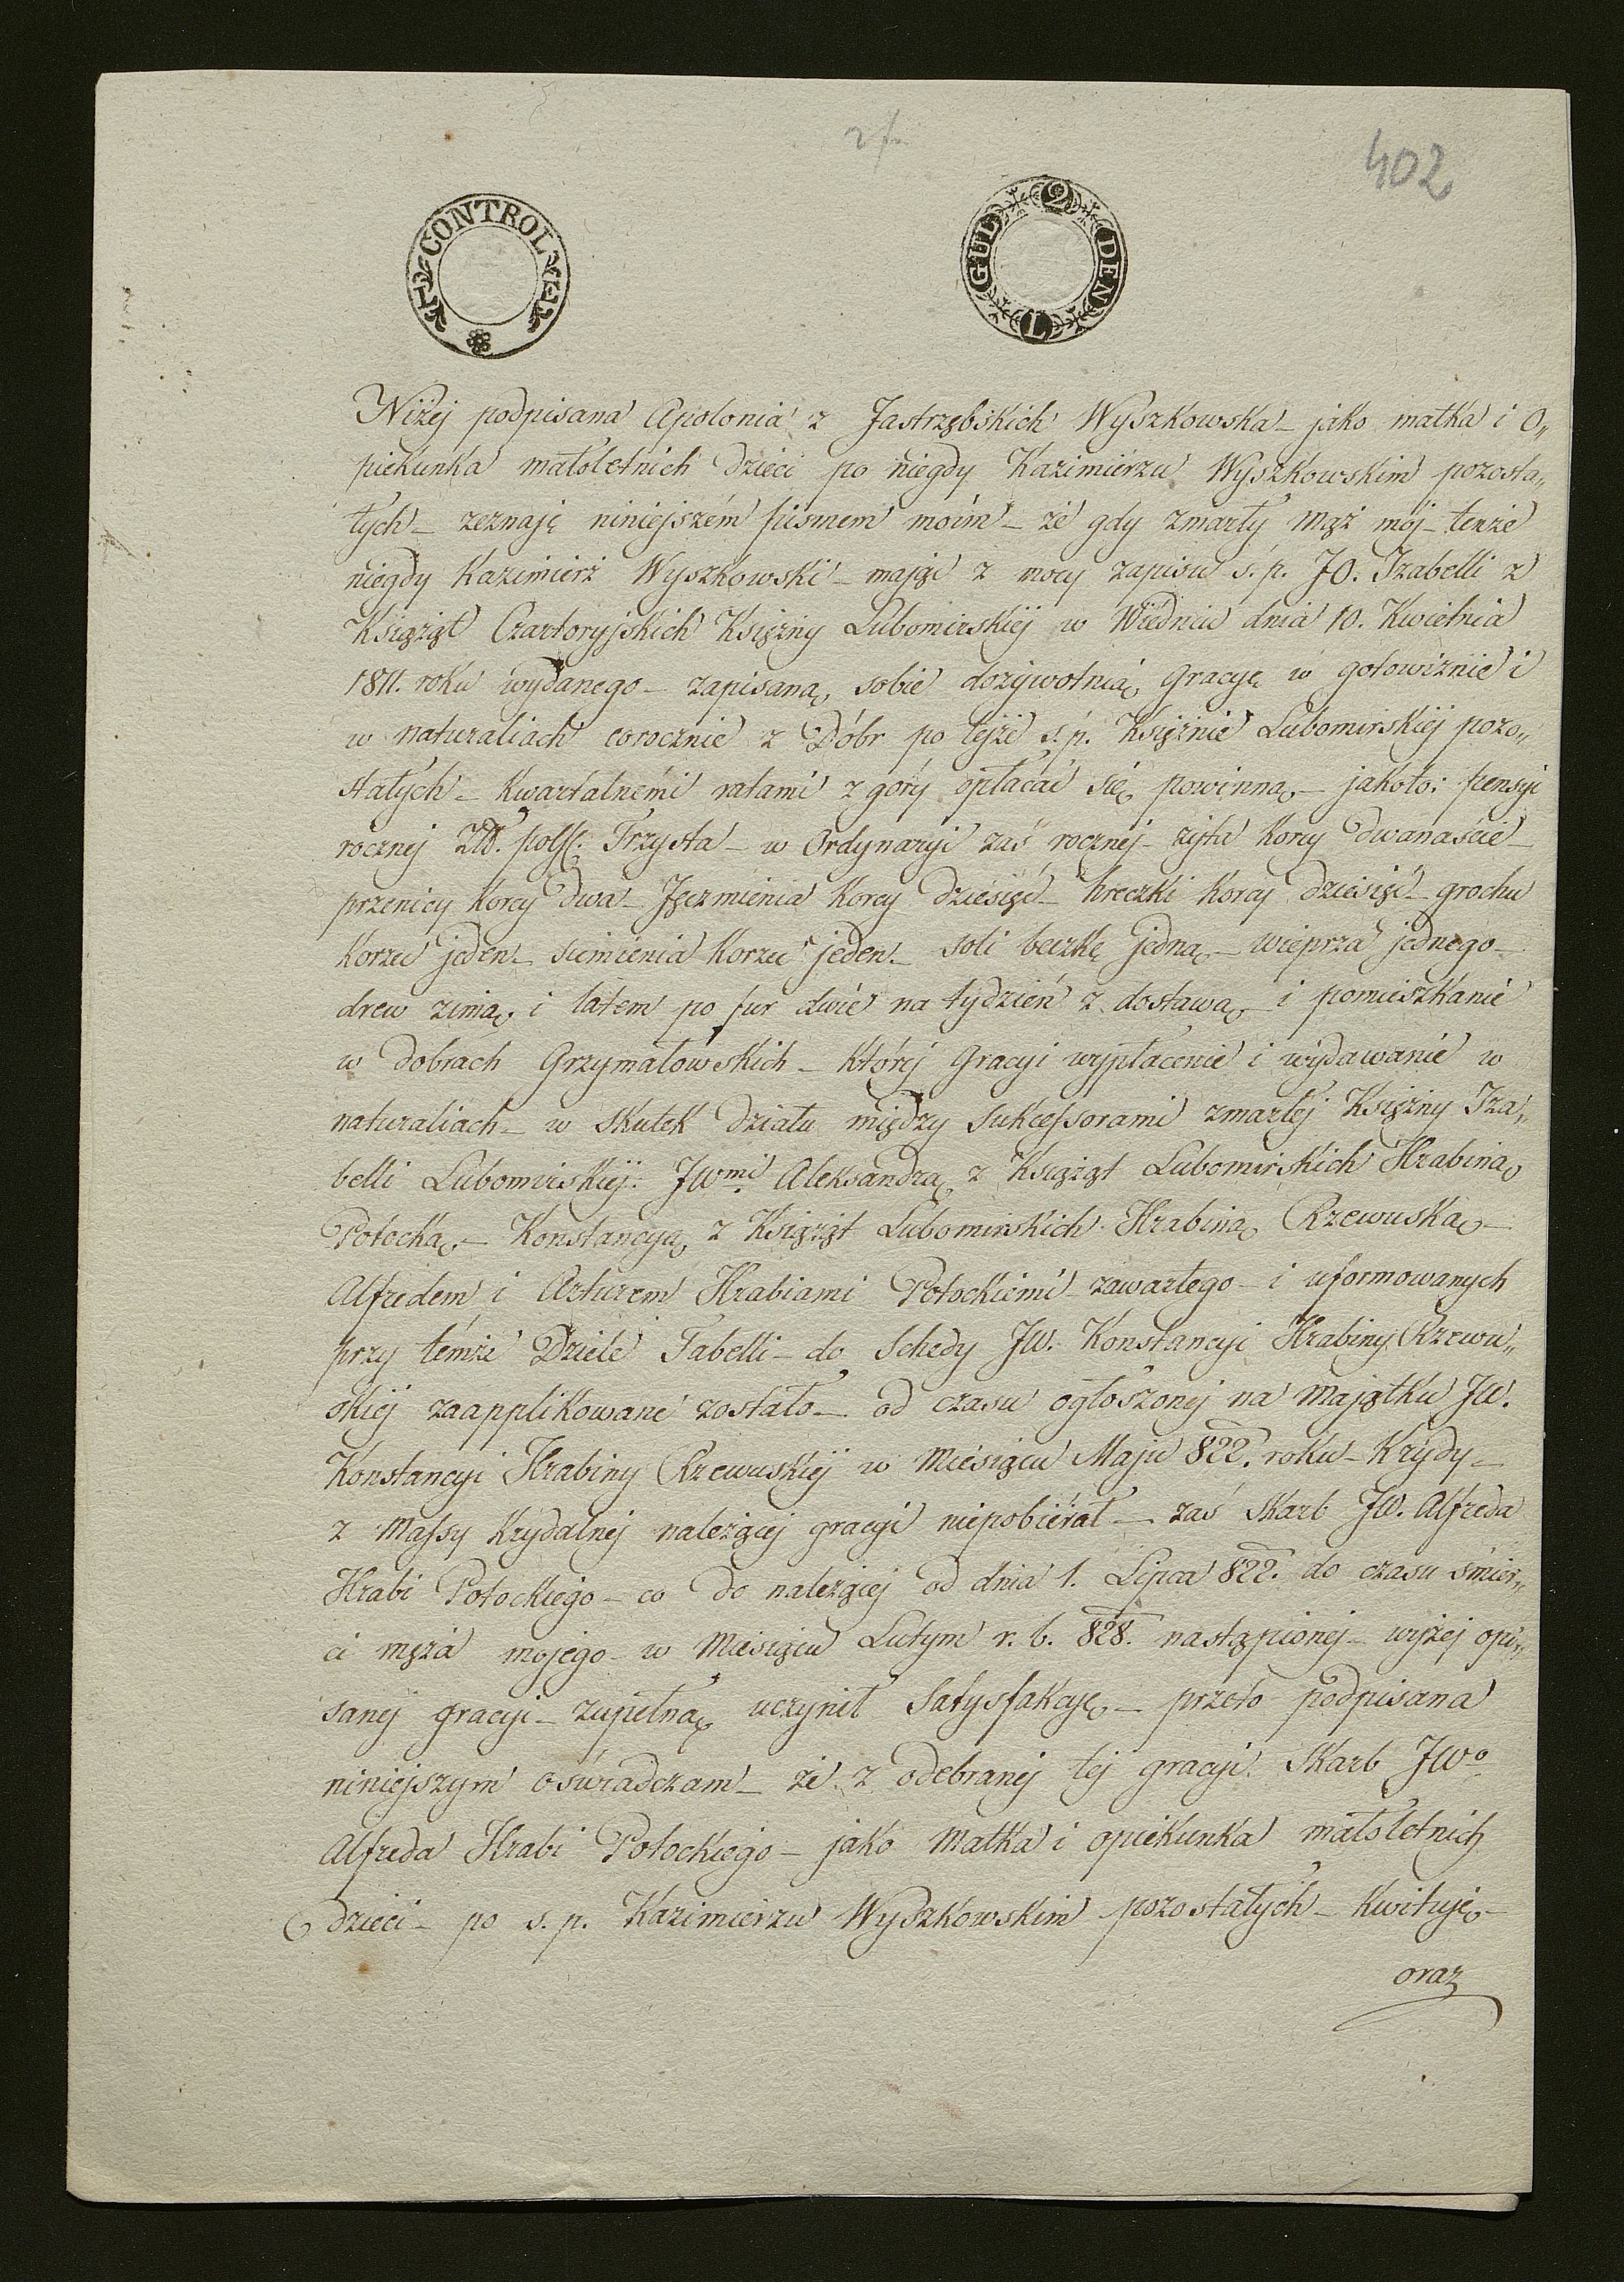 402
CONTROLE
2 GULDEN
Niżej podpisana Apolonia z Jastrzębskich Wyszkowska – jako matka i O„
piekunka małoletnich Dzieci po niegdy Kazimierzu Wyszkowskim pozosta„
łych – zeznaję niniejszém pismem moim – że gdy zmarły mąż mój – tenże
niegdy Kazimierz Wyszkowski – mając z mocy zapisu ś. p. JO. Izabelli z
Książąt Czartoryskich Księżny Lubomirskiéj w Wiedniu dnia 10. Kwietnia
1811. roku wydanego – zapisaną sobie dożywotnią gracyę w gotowiznie i
w naturaliach corocznie z Dóbr po tejże ś. p. Księżnie Lubomirskiéj pozo„
stałych – kwartalnémi ratami z góry opłacać się powinną – jakoto: pensyi
rocznej Złł. polsk. Trzysta – w Ordynaryi zaś rocznéj – żyta korcy dwanaście –
przenicy korcy dwa – Jęczmienia korcy dziesięć – hreczki korcy dziesięć – grochu
korzec jeden – siemienia korzec jeden – soli beczkę jedną – wieprza jednego –
drew zimą i latem po fur dwie na tydzień z dostawą – i pomieszkanie
w dobrach Grzymałowskich – której Gracyi wypłacenie i wydawanie w
naturaliach – w skutek działu między Sukcessorami zmarłéj Księżny Iza„
belli Lubomirskiéj: JWmi Aleksandrą z Książąt Lubomirskich Hrabiną
Potocką – Konstancyą z Książąt Lubomirskich Hrabiną Rzewuską –
Alfredem i Arturem Hrabiami Potockiemi zawartego – i uformowanych
przy témże Dziele Tabelli – do Schedy JW. Konstancyi Hrabiny Rzewu„
skiéj zaapplikowane zostało – od czasu ogłoszonej na majątku JW.
Konstancyi Hrabiny Rzewuskiéj w Miesiącu Maju 822. roku – Krydy –
z Massy Krydalnej należącej gracyi niepobiérał – zaś Skarb JW. Alfreda
Hrabi Potockiego – co do należącej od dnia 1. Lipca 822. do czasu śmier„
ci męża mojego – w Miesiącu Lutym r. b. 828. nastąpionéj – wyżej opi„
sanej gracyi – zupełną uczynił Satysfakcyę – przeto podpisana
niniejszym oświadczam – że z odebranéj tej gracyi Skarb JWo
Alfreda Hrabi Potockiego – jako Matka i opiekunka małoletnich
dzieci – po ś. p. Kazimierzu Wyszkowskim pozostałych – kwituję –
oraz